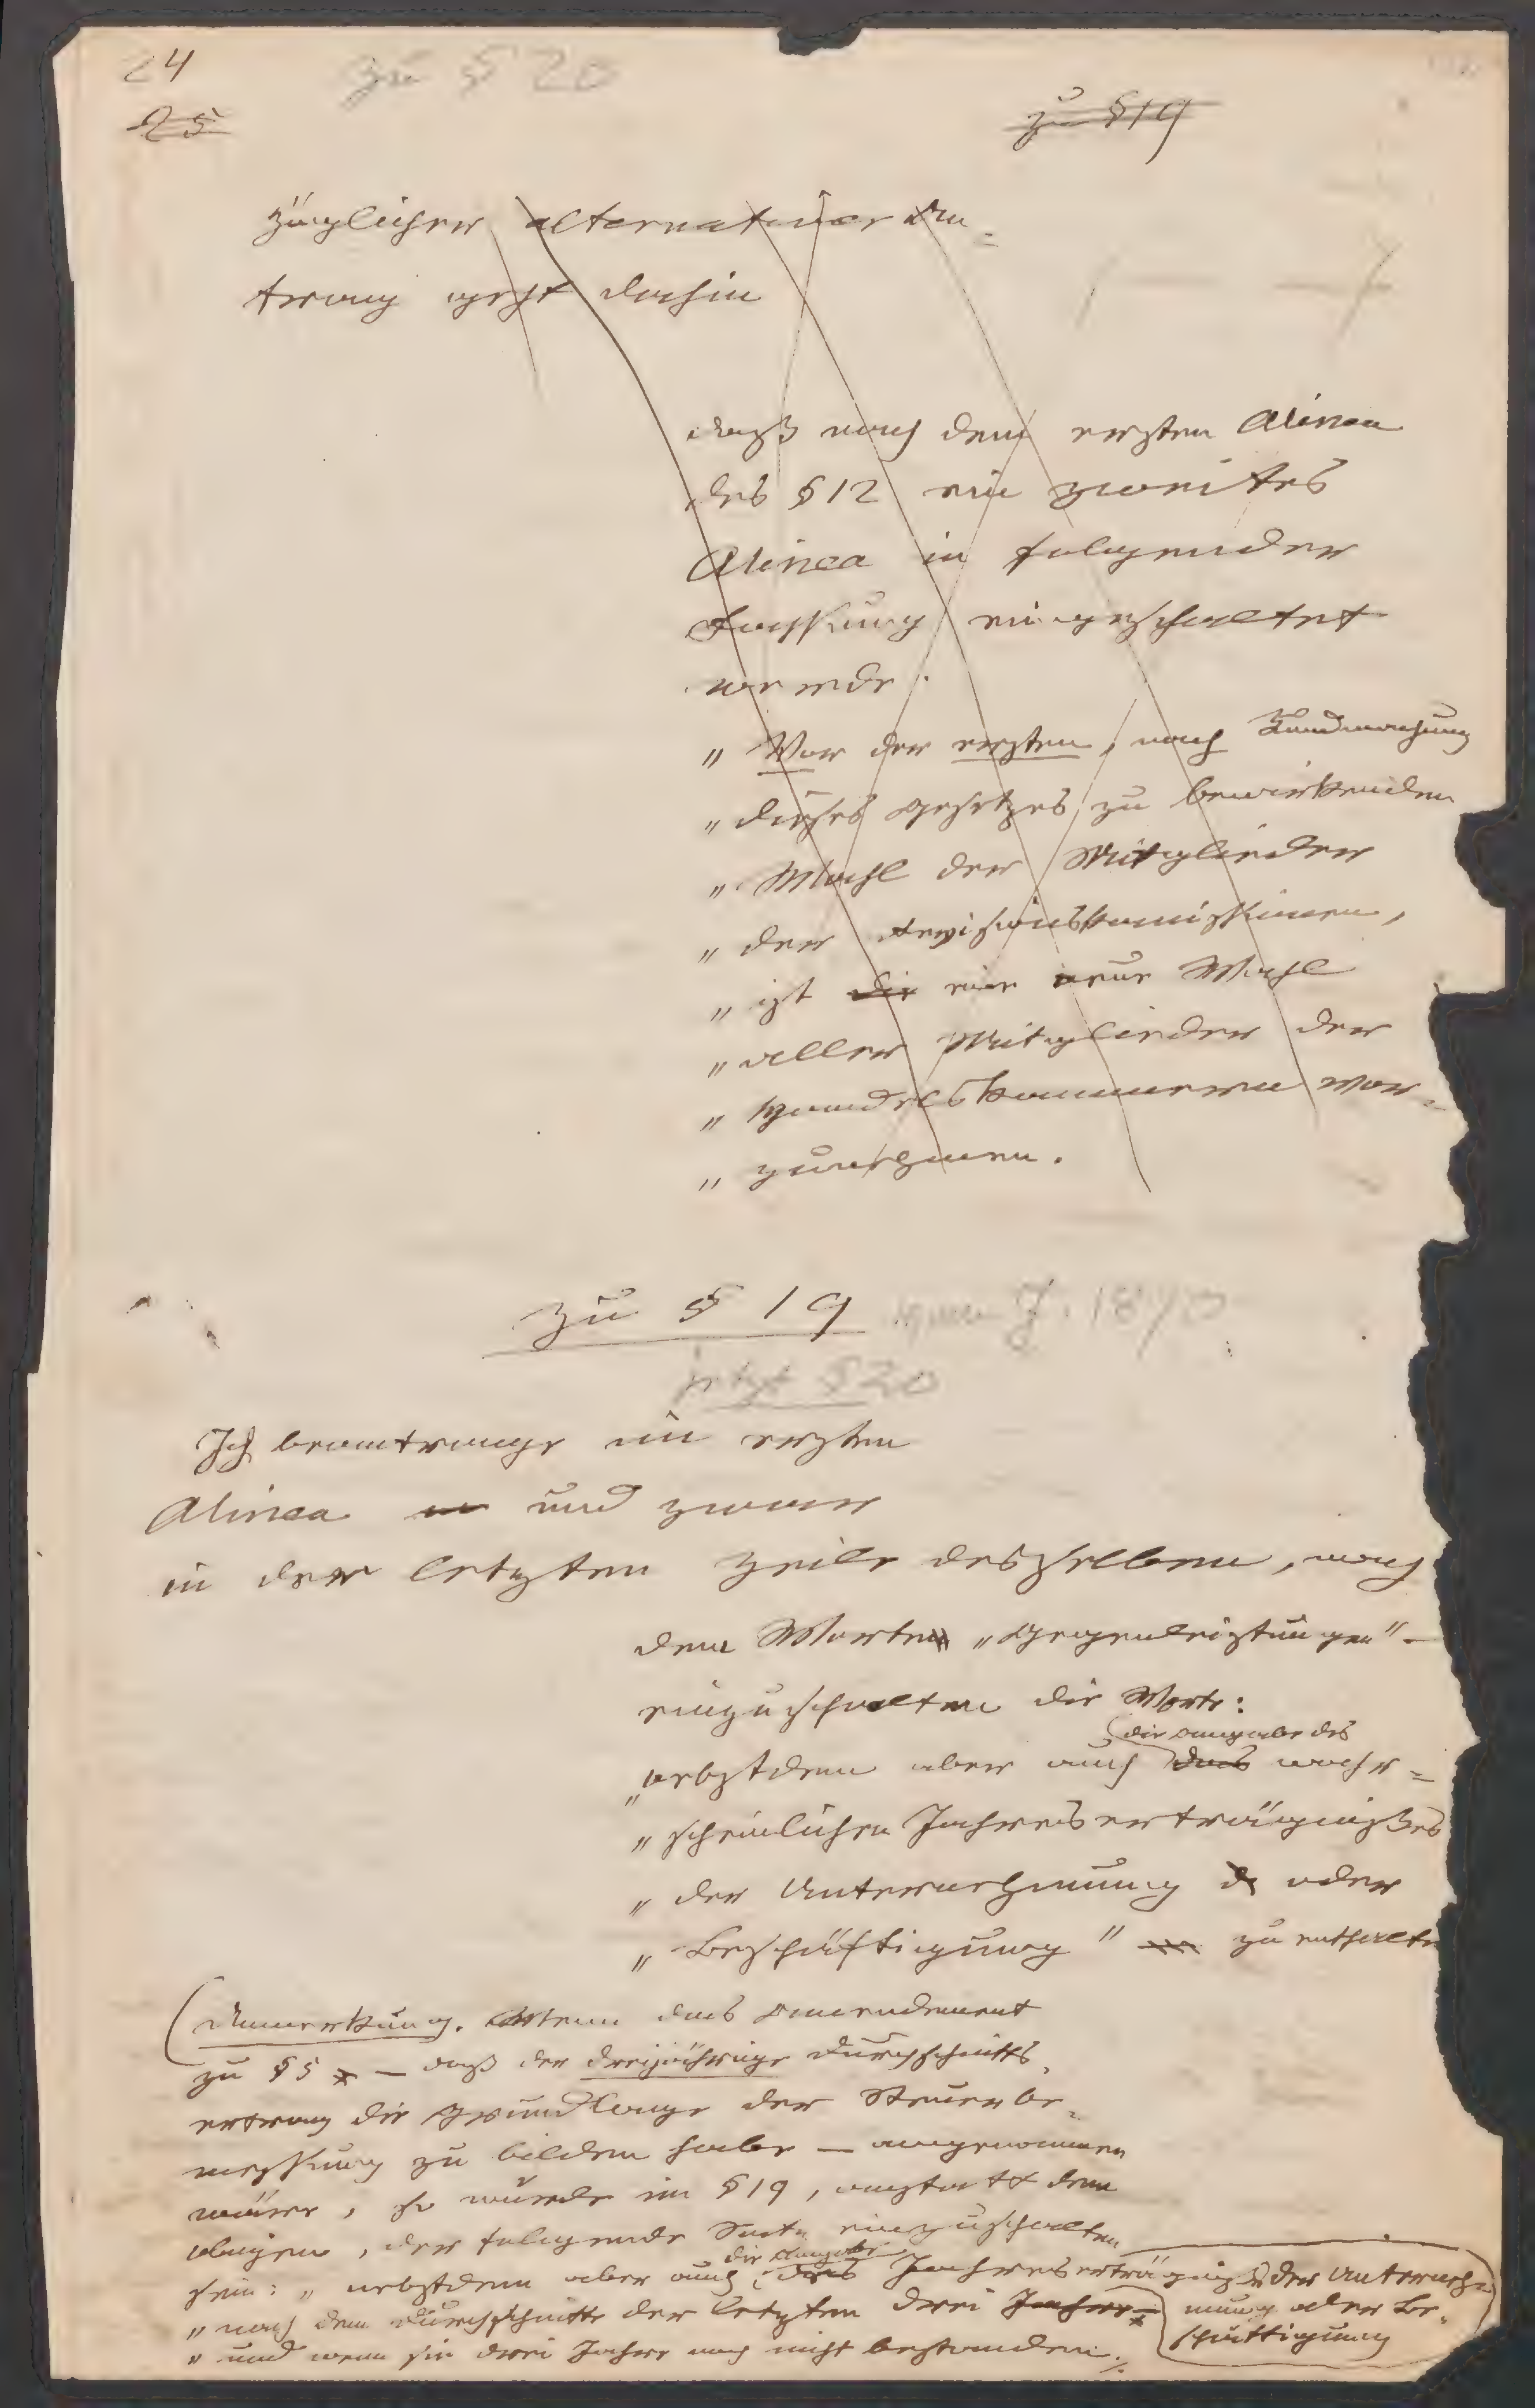 24
zu § 20
25
zu § 19
züglicher alternativer An=
trag geht dahin
daß nach dem ersten Alinea
des § 12 ein zweites
Alinea in folgender
Fassung eingeschaltet
werde.
„ Vor der ersten, nach Kundmachung
„ dieses Gesetzes zu bewirkenden
„ Wahl der Mitglieder
„ der Revisionskomissionen,
„ ist die eine neue Wahl
„ aller Mitglieder der
„ Handelskammern vor=
„ zunehmen.
zu § 19 vom J. 1870
jetzt § 20
Ich beantrage im ersten
Alinea und zwar
in der letzten Zeile desselben, nach
dem Worten „Gegenleistungen" –
einzuschalten die Worte:
die Angabe des
„nebstdem aber auch das wahr=
„ scheinlichen Jahreserträgnißes
„ der Unternehmung oder
„ Beschäftigung" zu enthalten
Anmerkung. Wenn das Amendement
zu § 5 – daß der dreijährige Durchschnitts=
ertrag die Grundlage der Steuerbe=
messung zu bilden habe – angenommen
wäre, so würde im § 19, anstatt dem
obigen, der folgende Satz einzuschalten
die Angabe
sein: „ nebstdem aber auch des Jahreserträgnißes der Unterneh=
„ nach dem Durchschnitte der letzten drei Jahre mung oder Be=
schäftigung
„ und wenn sie drei Jahre noch nicht bestanden